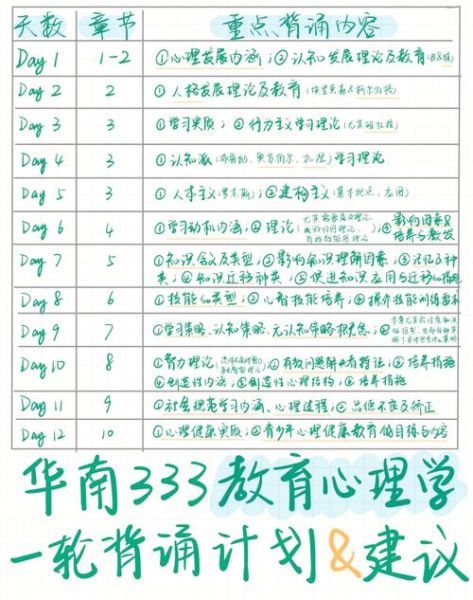 天数 章节 重点背诵内容
Day 1 1-2 ①心理发展内涵；②认知发展理论及教育
Day 2 2 ①人格发展理论及教育(埃里克森&柯尔伯格)
Day 3 3 ①学习实质；②行为主义学习理论
Day 4 3 ①认知派(布鲁纳、奥苏伯尔、加涅)学习理论
Day 5 3 ①人本主义(罗杰斯)；②建构主义(基本观点、应用)
Day 6 4 ①学习动机内涵；②理论 ③影响因素&
培养与激发
Day 7 5 ①知识含义及类型；②影响知识理解因素；③记忆及种
类；④知识迁移种类；⑤促进知识应用与迁移的措施
Day 8 6 ①技能&类型；②心智技能培养；③操作技能训练要求
Day 9 7 ①学习策略、认知策略、元认知策略概念；②
Day 10 8 ①智力理论 ②有效问题解决者特征；③培养措施
④创造性内涵；⑤创造性心理结构；⑥培养措施
Day 11 9 ①社会规范学习内涵、心理过程；②品德不良及矫正
Day 12 10 ①心理健康实质；②青少年心理健康教育的目标与内容
华南333教育心理学
一轮背诵计划&建议